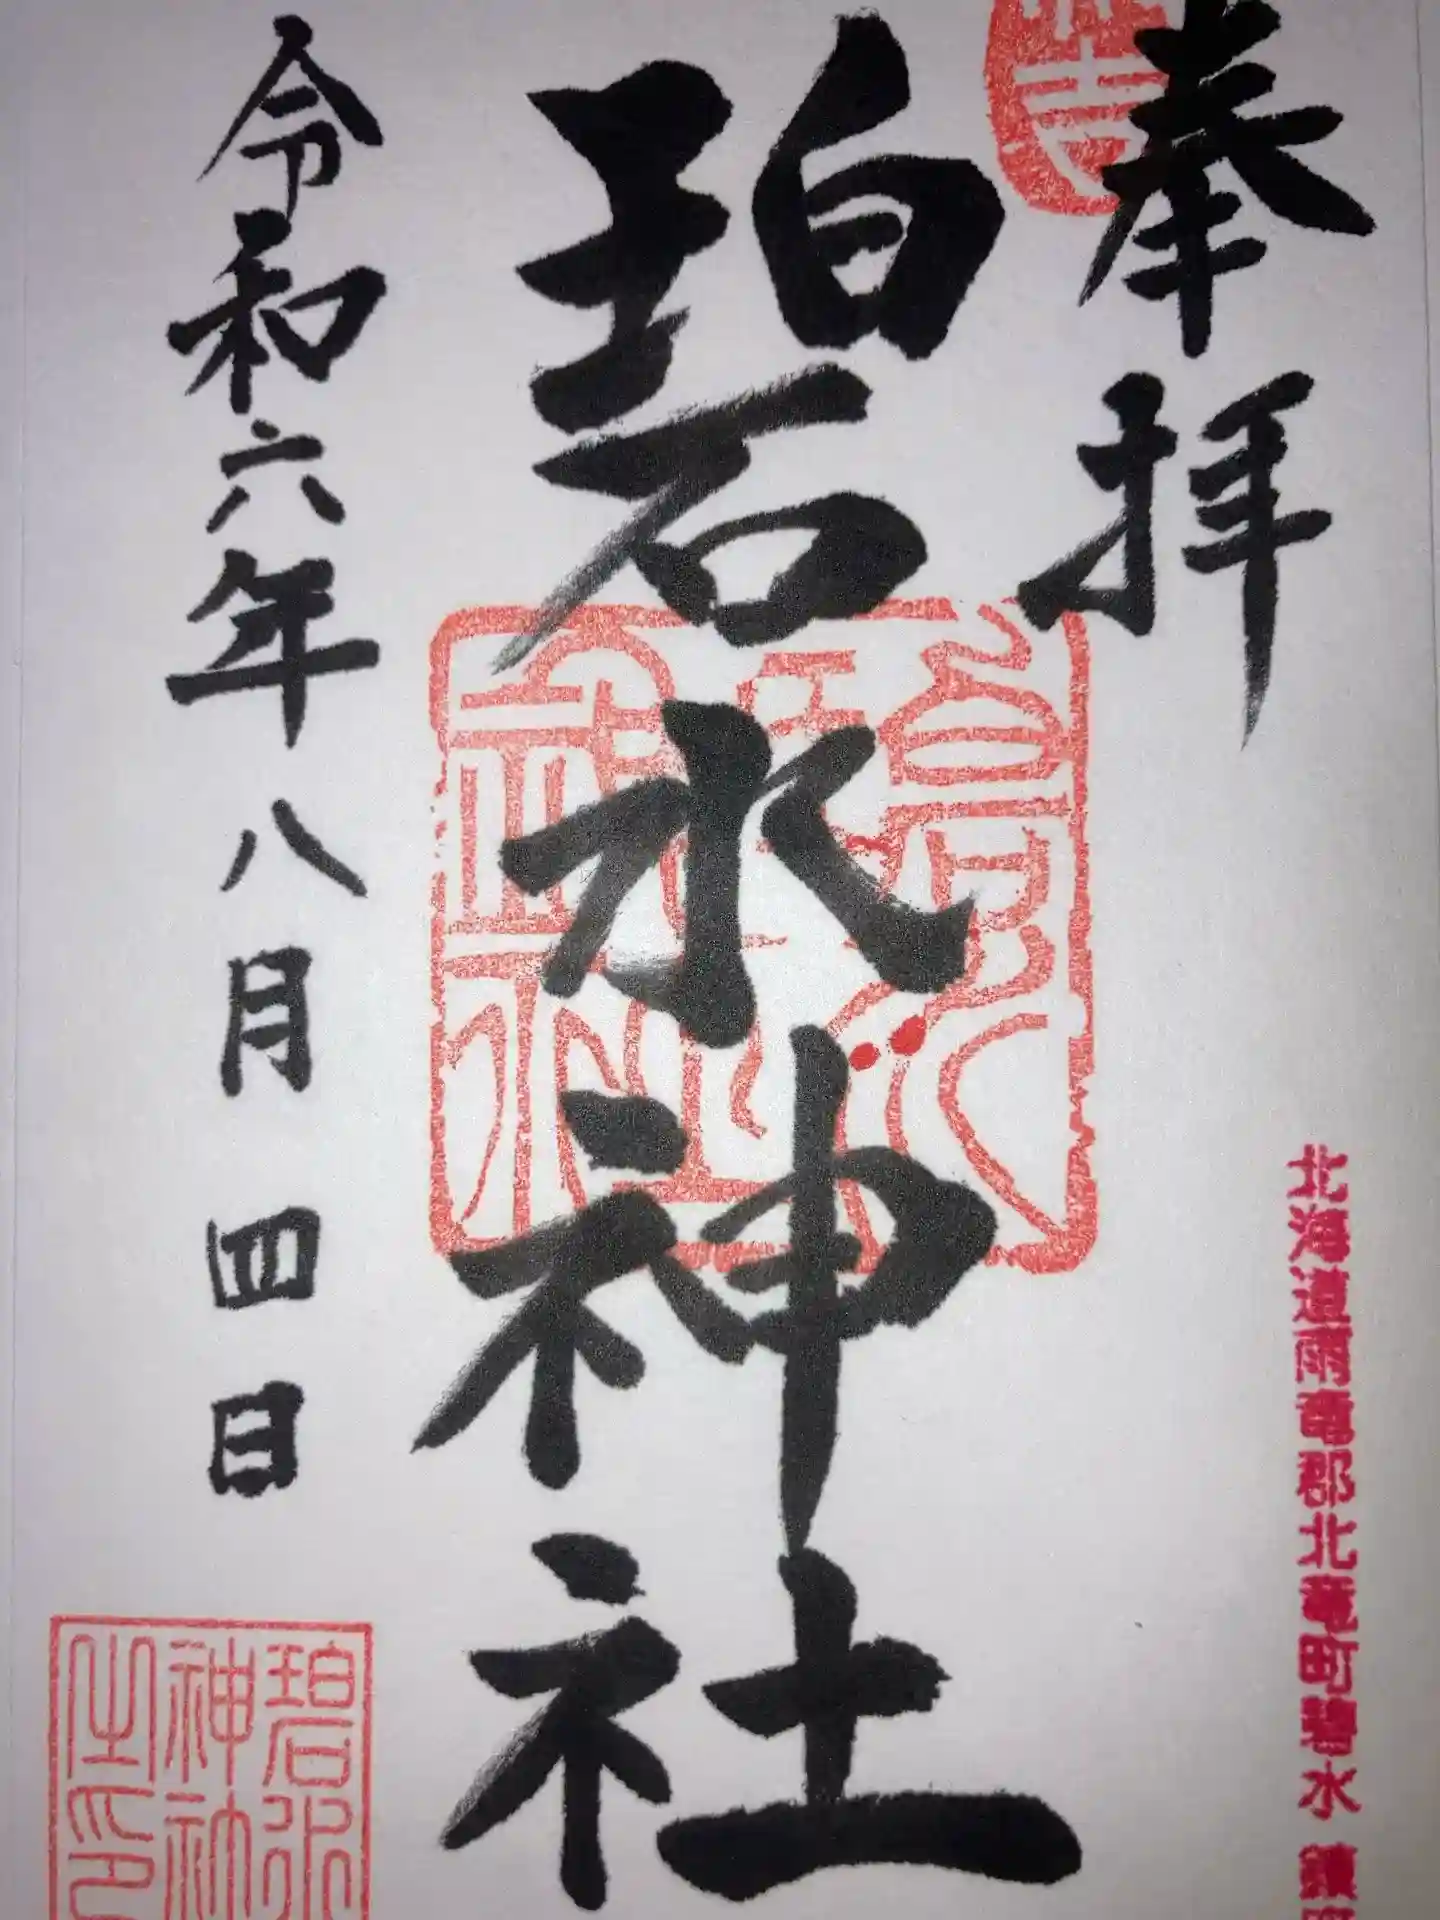 奉拝
北海道雨竜郡北竜町碧水 鎮
碧水神社
令和六年八月四日
碧水
神社
之印